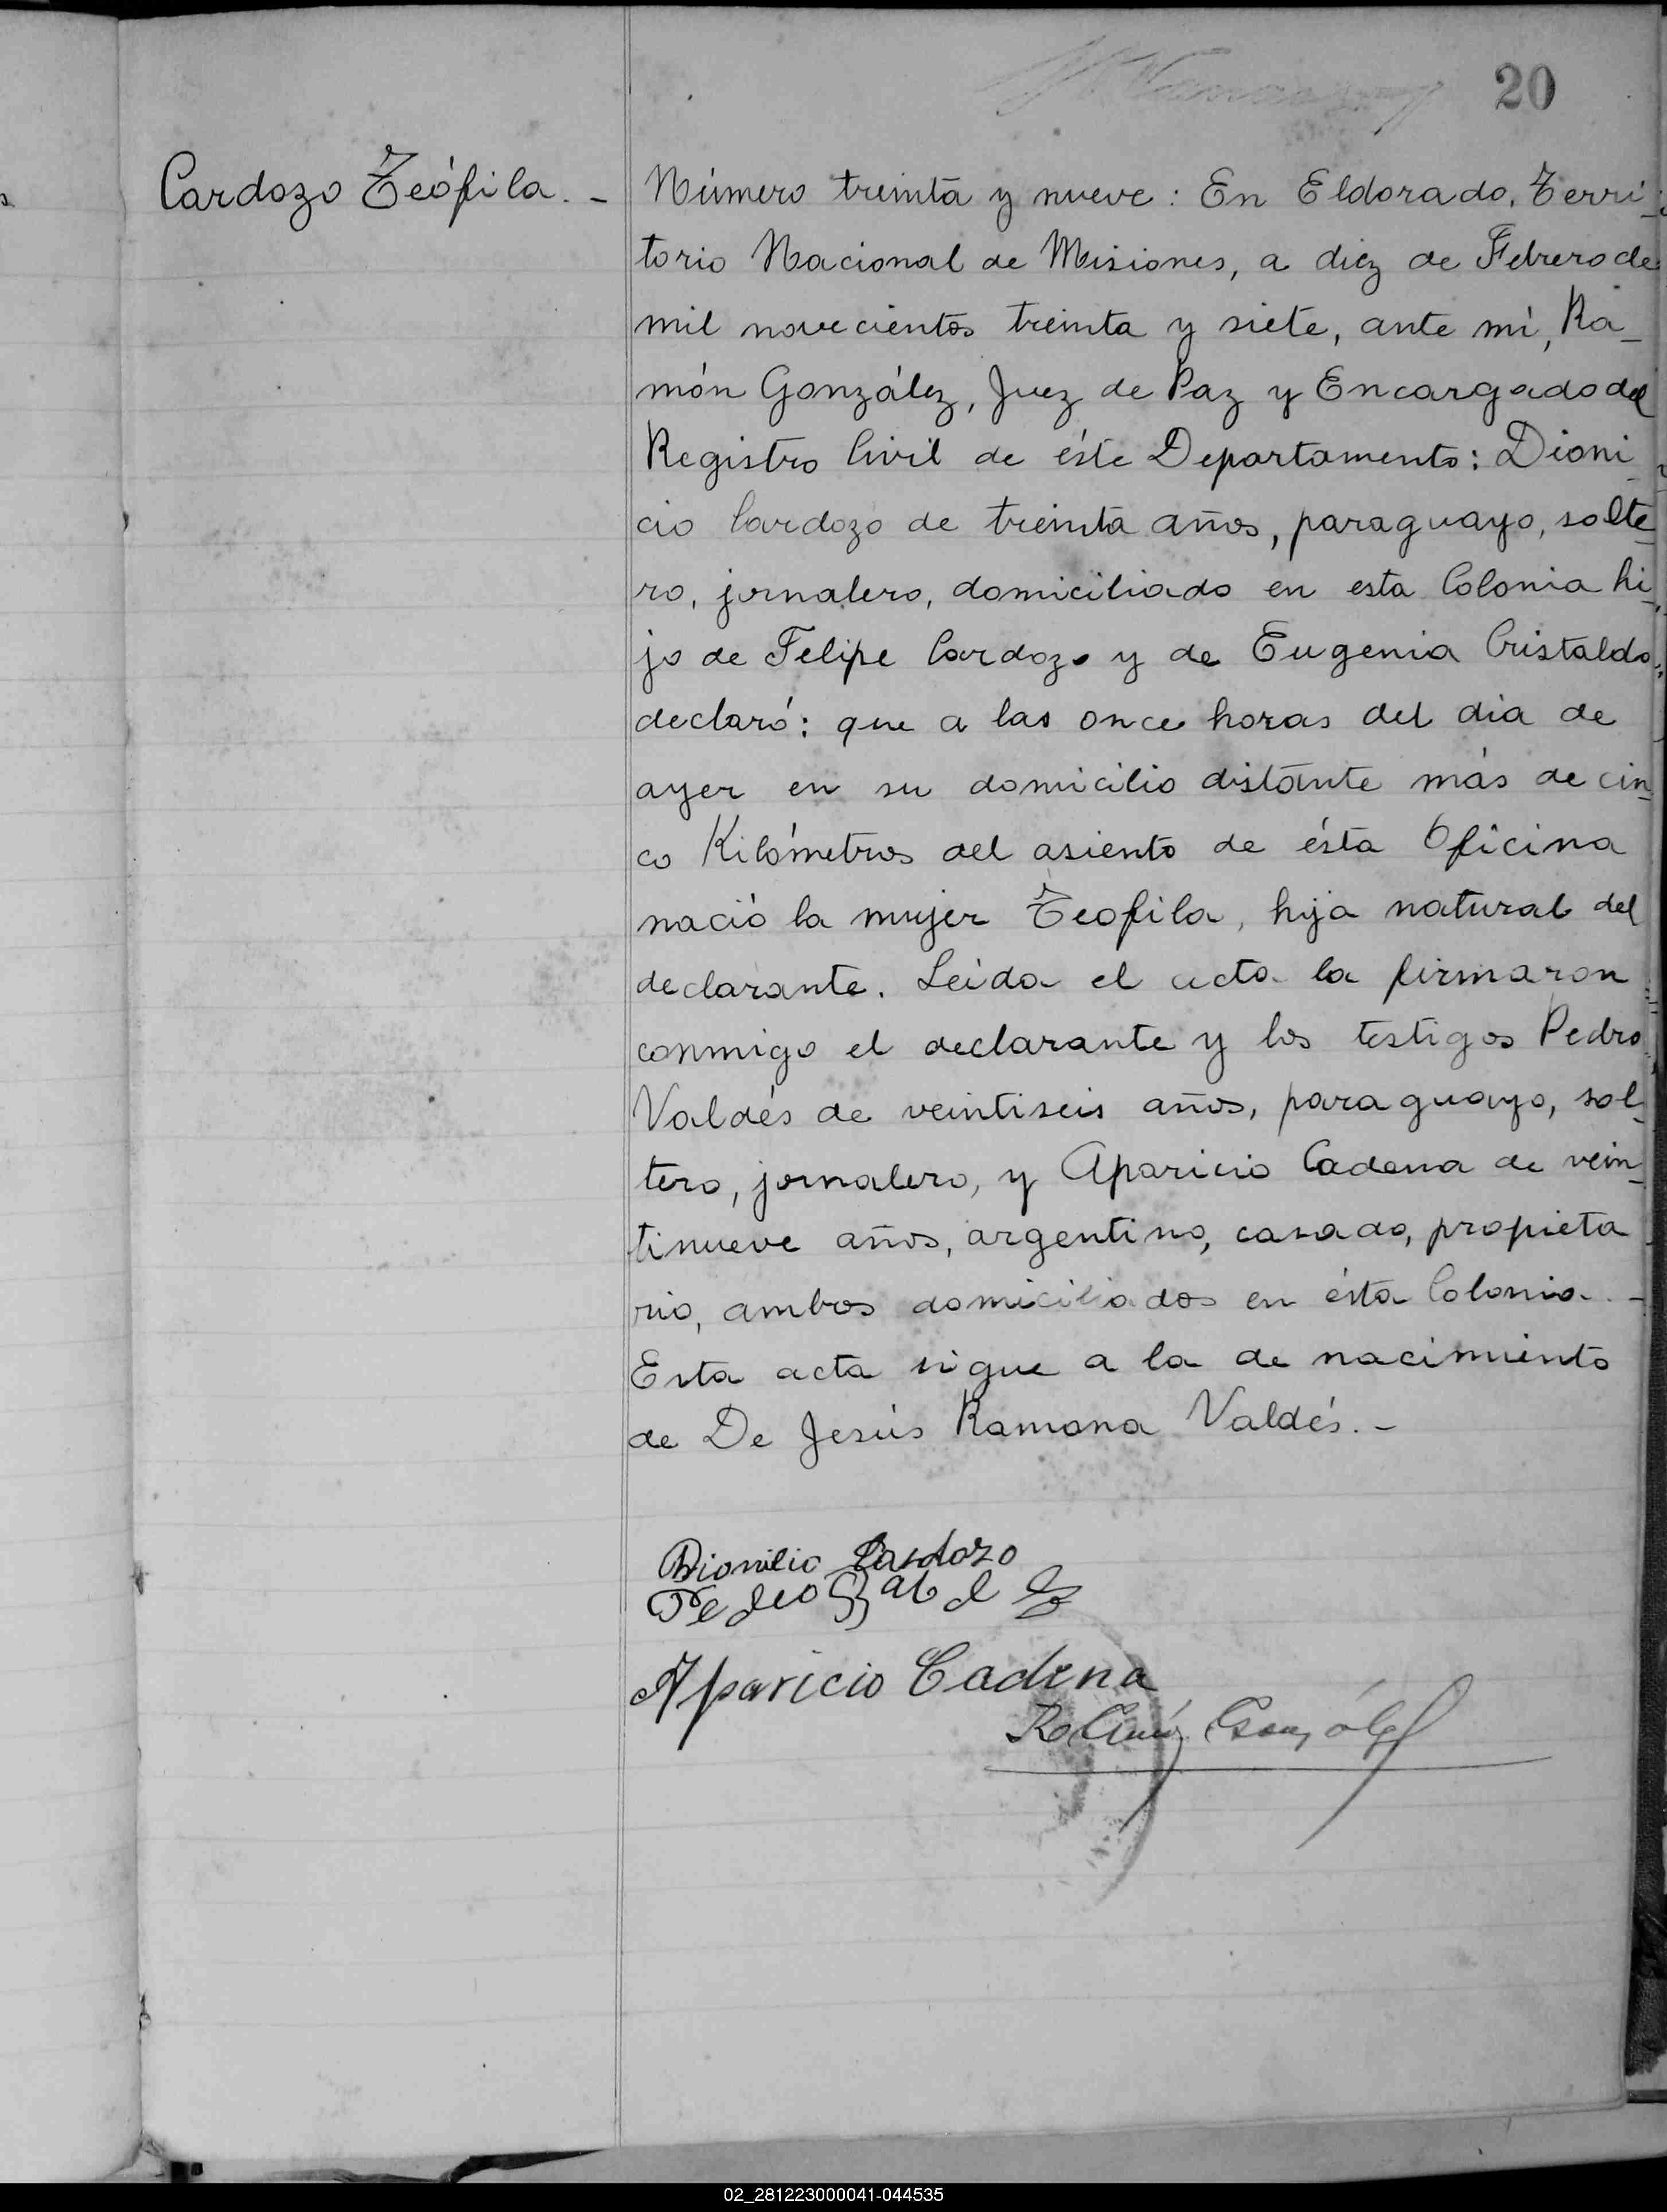 20
Cardozo Teófila. -
Número treinta y nueve: En Eldorado, Terri-
torio Nacional de Misiones, a diez de Febrero de
mil novecientos treinta y siete, ante mí, Ra-
món González, Juez de Paz y Encargado del
Registro Civil de éste Departamento: Dioni-
cio Cardozo de treinta años, paraguayo, solte-
ro, jornalero, domiciliado en esta Colonia hi-
jo de Felipe Cardozo y de Eugenia Cristaldo
declaró: que a las once horas del dia de
ayer en su domicilio distante más de cin-
co Kilómetros del asiento de ésta Oficina
nació la mujer Teofila, hija natural del
declarante. Leida el acta la firmaron
conmigo el declarante y los testigos Pedro
Valdés de veintiseis años, paraguayo, sol-
tero, jornalero, y Aparicio Cadena de vein-
tinueve años, argentino, casado, propieta
rio, ambos domiciliados en ésta Colonia. -
Esta acta sigue a la de nacimiento
de De Jesús Ramona Valdés. -
Dionicio Cardozo
Pedro Balde
Aparicio Cadena
González
02_281223000041-044535